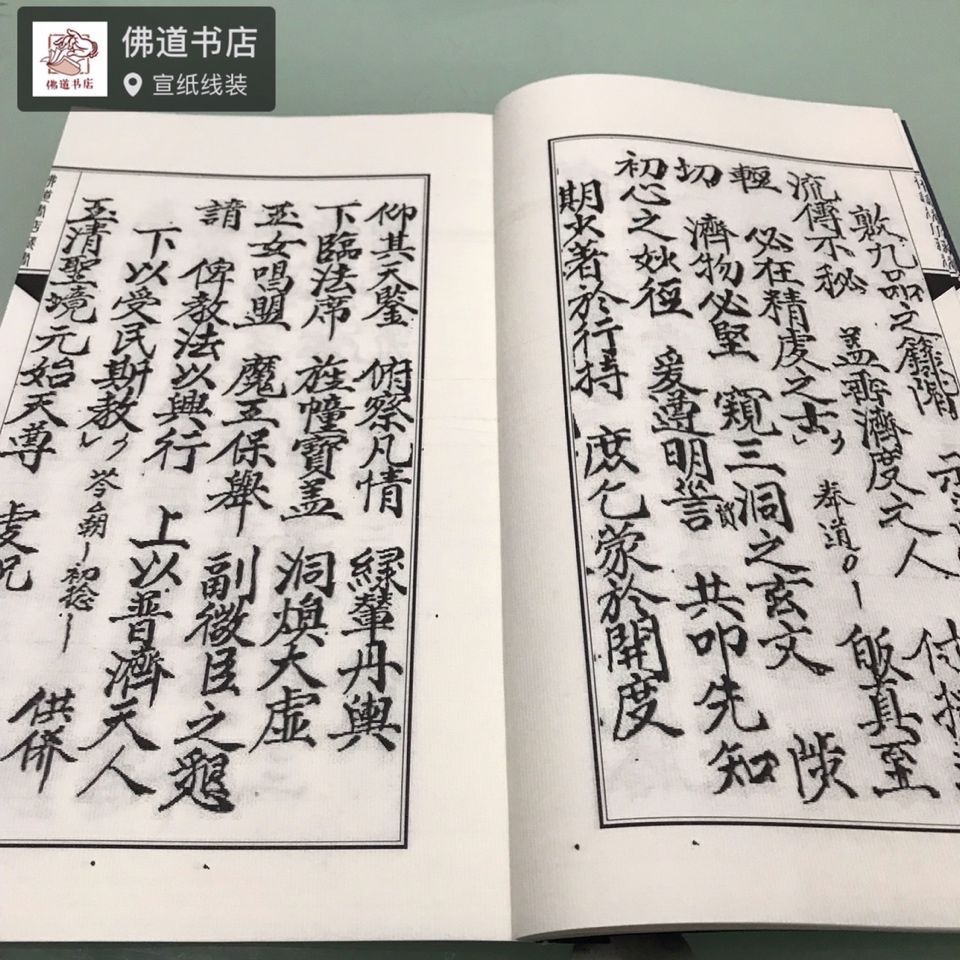 佛道书店
宣纸线装
佛道书店
敦九品之籙階
流傳不秘 盖齊濟度之人
輕 必在精虔之士 奉道 皈真至
切 濟物必堅 窺三洞之玄文 陟
初心之妙徑 爰遵明誥 共叩先知
期大著於行持 庶乞蒙於開度
仰其天鑒 俯察凡情 綠輦丹輿
下臨法席 旌幢寶盖 洞煥大虛
玉女唱盟 魔王保舉 副微臣之懇
請 俾教法以興行 上以普濟天人
下以受民斯教 初捻 供
玉清聖境元始天尊